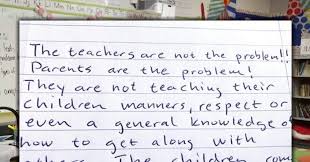 The teachers are not the problem!!
Parents are the problem!
They are not teaching their
children manners, respect or
even a general knowledge of
how to get along with
others. The children com